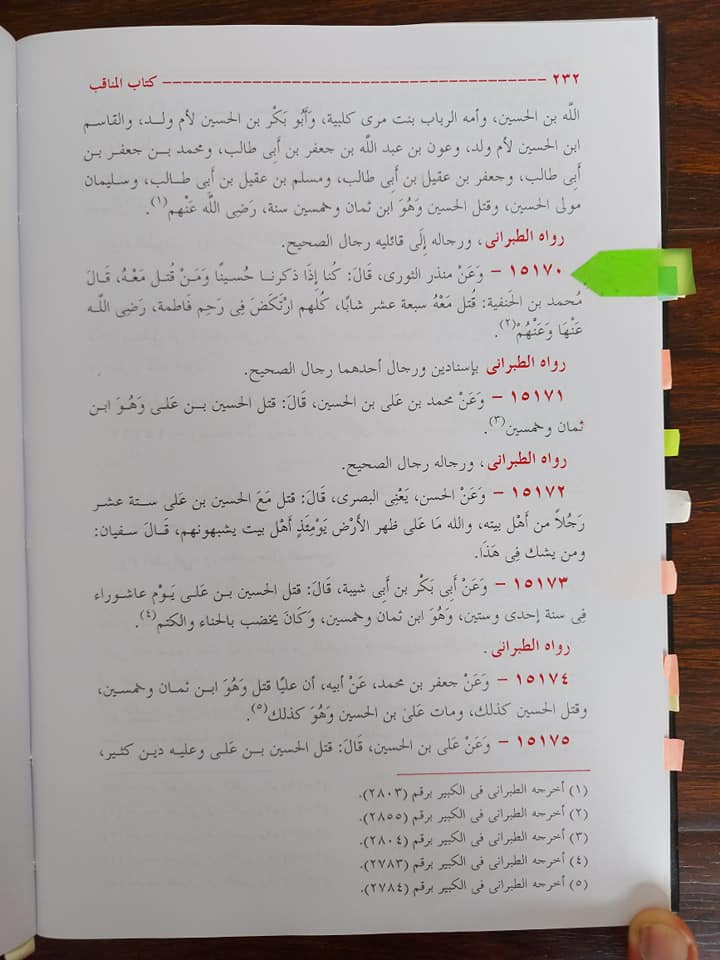 ٢٣٢ ------------------------------------------- كتاب المناقب
اللَّه بن الحسين، وأمه الرباب بنت مرى كلبية، وَأَبُو بَكْر بن الحسين لأم ولـد، والقاسم
ابن الحسين لأم ولد، وعون بن عبد اللَّه بن جعفر بن أَبِى طالب، ومحمد بـن جعفـر بن
أَبِى طالب، وجعفر بن عقيل بن أَبِى طالب، ومسلم بن عقيل بن أَبِى طـالب، وسـليمان
مولى الحسين، وقتل الحسين وَهُوَ ابن ثمان وخمسين سنة، رَضِى اللَّه عَنْهم(١).
رواه الطبرانى، ورجاله إِلَى قائليه رجال الصحيح.
١٥١٧٠ - وَعَنْ منذر الثورى، قَالَ: كُنا إِذَا ذكرنـا حُسـينًا وَمَنْ قُتـل مَعْـهُ، قَـالَ
مُحمد بن الحَنفية: قُتل مَعْهُ سبعة عشر شابًا، كُلهم ارْتكَضَ فِى رَحِم فَاطمة، رَضِى اللَّـه
عَنْهَا وَعَنْهُمْ(٢).
رواه الطبرانى بإسنادين ورجال أحدهما رجال الصحيح.
١٥١٧١ - وَعَنْ محمد بن عَلى بن الحسين، قَالَ: قتل الحسين بـن عَلـى وَهُوَ ابـن
ثمان وخمسين(٣).
رواه الطبرانى، ورجاله رجال الصحيح.
١٥١٧٢ - وَعَنْ الحسن، يَعْنِى البصرى، قَالَ: قتل مَعَ الحسين بن عَلى ستـة عشـر
رَجُلاً من أَهْل بيته، والله مَا عَلى ظهر الأَرْض يَوْمِئَذٍ أَهْل بيت يشبهونهم، قَـالَ سـفيان:
ومن يشك فِى هَذَا.
١٥١٧٣ - وَعَنْ أَبِى بَكْر بن أَبِى شيبة، قَالَ: قتل الحسين بـن عَلـى يَـوْم عاشـوراء
فِى سنة إحدى وستين، وَهُوَ ابن ثمان وخمسين، وَكَانَ يخضب بالحناء والكتم(٤).
رواه الطبرانى.
١٥١٧٤ - وَعَنْ جعفر بن محمد، عَنْ أبيه، أن عليًا قتل وَهُوَ ابـن ثمـان وخمسـين،
وقتل الحسين كذلك، ومات عَلىَ بن الحسين وَهُوَ كذلك(٥).
١٥١٧٥ - وَعَنْ عَلى بن الحسين، قَالَ: قتل الحسين بـن عَلـى وعليـه ديـن كثـير،
(١) أخرجه الطبرانى فى الكبير برقم (٢٨٠٣).
(٢) أخرجه الطبرانى فى الكبير برقم (٢٨٥٥).
(٣) أخرجه الطبرانى فى الكبير برقم (٢٨٠٤).
(٤) أخرجه الطبرانى فى الكبير برقم (٢٧٨٣).
(٥) أخرجه الطبرانى فى الكبير برقم (٢٧٨٤).